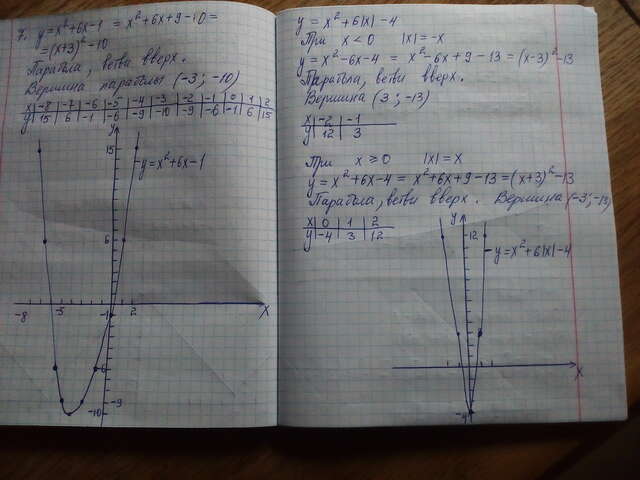 7. y = x²+6x-1 = x²+6x+9-10=
= (x+3)²-10
Парабола, ветви вверх.
Вершина параболы (-3; -10)
x | -8 | -7 | -6 | -5 | -4 | -3 | -2 | -1 | 0 | 1 | 2
y | 15 | 6 | -1 | -6 | -9 | -10 | -9 | -6 | -1 | 6 | 15
y
15
y = x²+6x-1
6
-8 -5 -1 2 X
-6
-9
-10
y = x²+6|x|-4
При x<0 |x|=-x
y = x²-6x-4 = x²-6x+9-13 = (x-3)²-13
Парабола, ветви вверх.
Вершина (3; -13)
x | -2 | -1
y | 12 | 3
При x⩾0 |x|=x
y = x²+6x-4 = x²+6x+9-13 = (x+3)²-13
Парабола, ветви вверх. Вершина (-3; -13)
x | 0 | 1 | 2
y | -4 | 3 | 12
y
12
y = x²+6|x|-4
X
-4